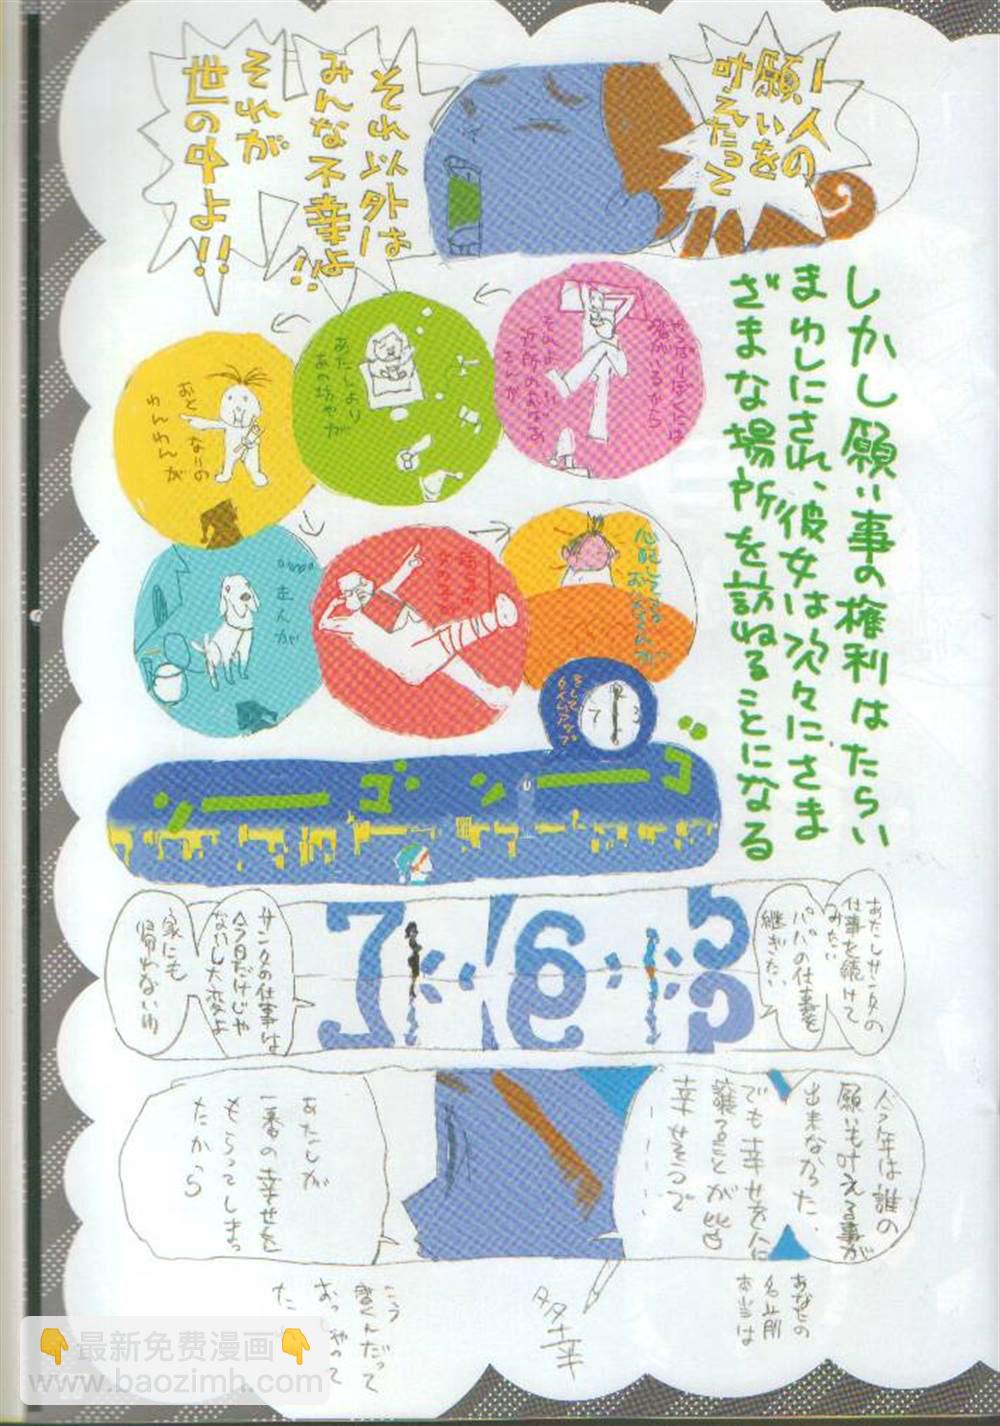 一人の
願いを
叶えたって
それ以外は
みんな不幸よ!!
それが
世の中よ!!
しかし願い事の権利はたらい
まわしにされ、彼女は次々にさま
ざまな場所を訪ねることになる
やっぱりぼくには
それより
近所のおばあ
さんが
あたしより
あの坊やが
おとなりの
わんわんが
主人が
心配してる
お父さんが
そして
タイムアップ
7
3
ゴーン
ゴーン
5
6
7
あたしサンタの
仕事を続けて
みたい
パパの仕事を
継ぎたい
サンタの仕事は
今日だけじゃ
ないし大変よ
家にも
帰れないし
今年は誰の
願いも叶える事が
出来なかった、
でも幸せを人に
譲ることが皆
幸せそうで
あたしが
一番の幸せを
もらってしまっ
たから
あなたの
名前
本当は
多幸
こう
書くんだって
おっしゃって
た
👇最新免费漫画👇
www.baozimh.com